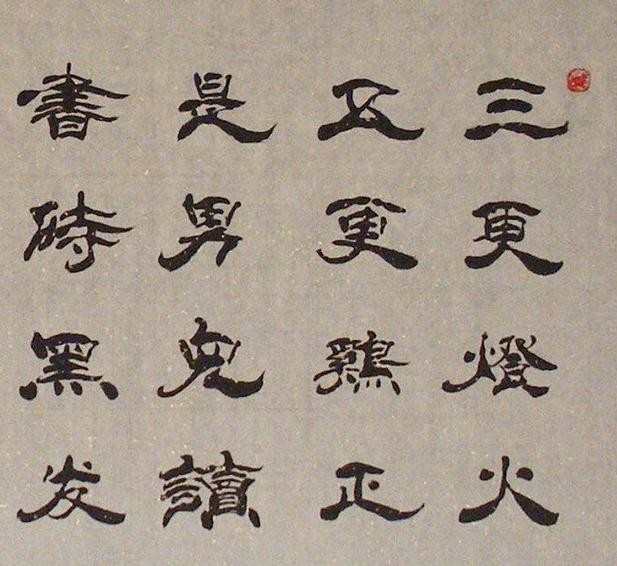 三更燈火
五更鷄正
是男兒讀
書時黑发